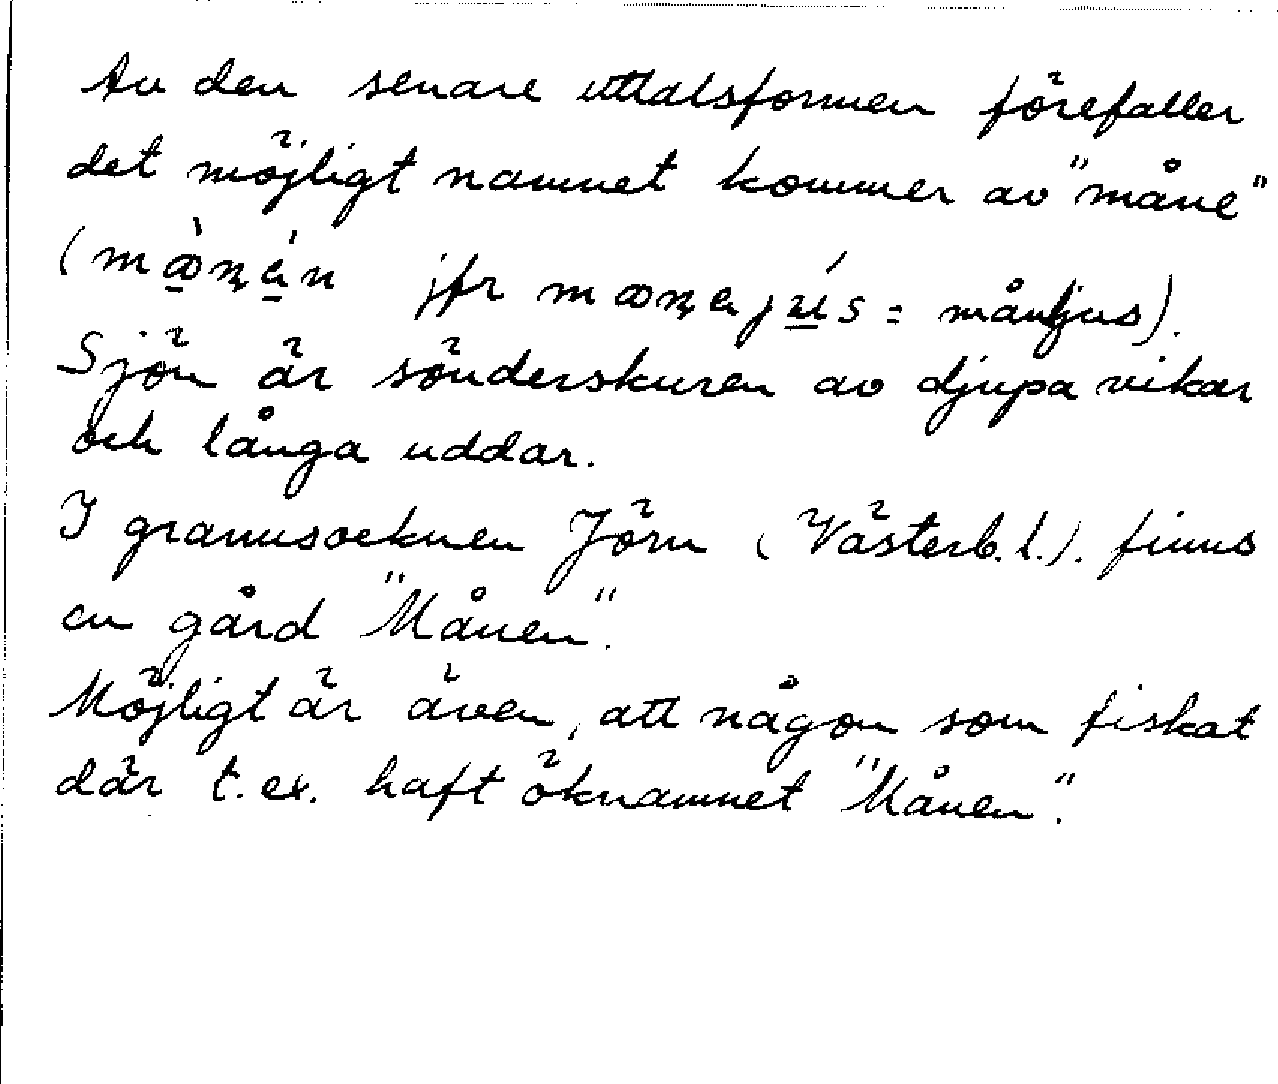 Av den senare uttalsformen förefaller
det möjligt namnet kommer av "måne"
( jfr = månljus).
Sjön är sönderskuren av djupa vikar
och långa uddar.
I grannsocknen Jörn (Västerb.l.). finns
en gård "Månen".
Möjligt är även, att någon som fiskat
där t.ex. haft öknamnet "Månen".